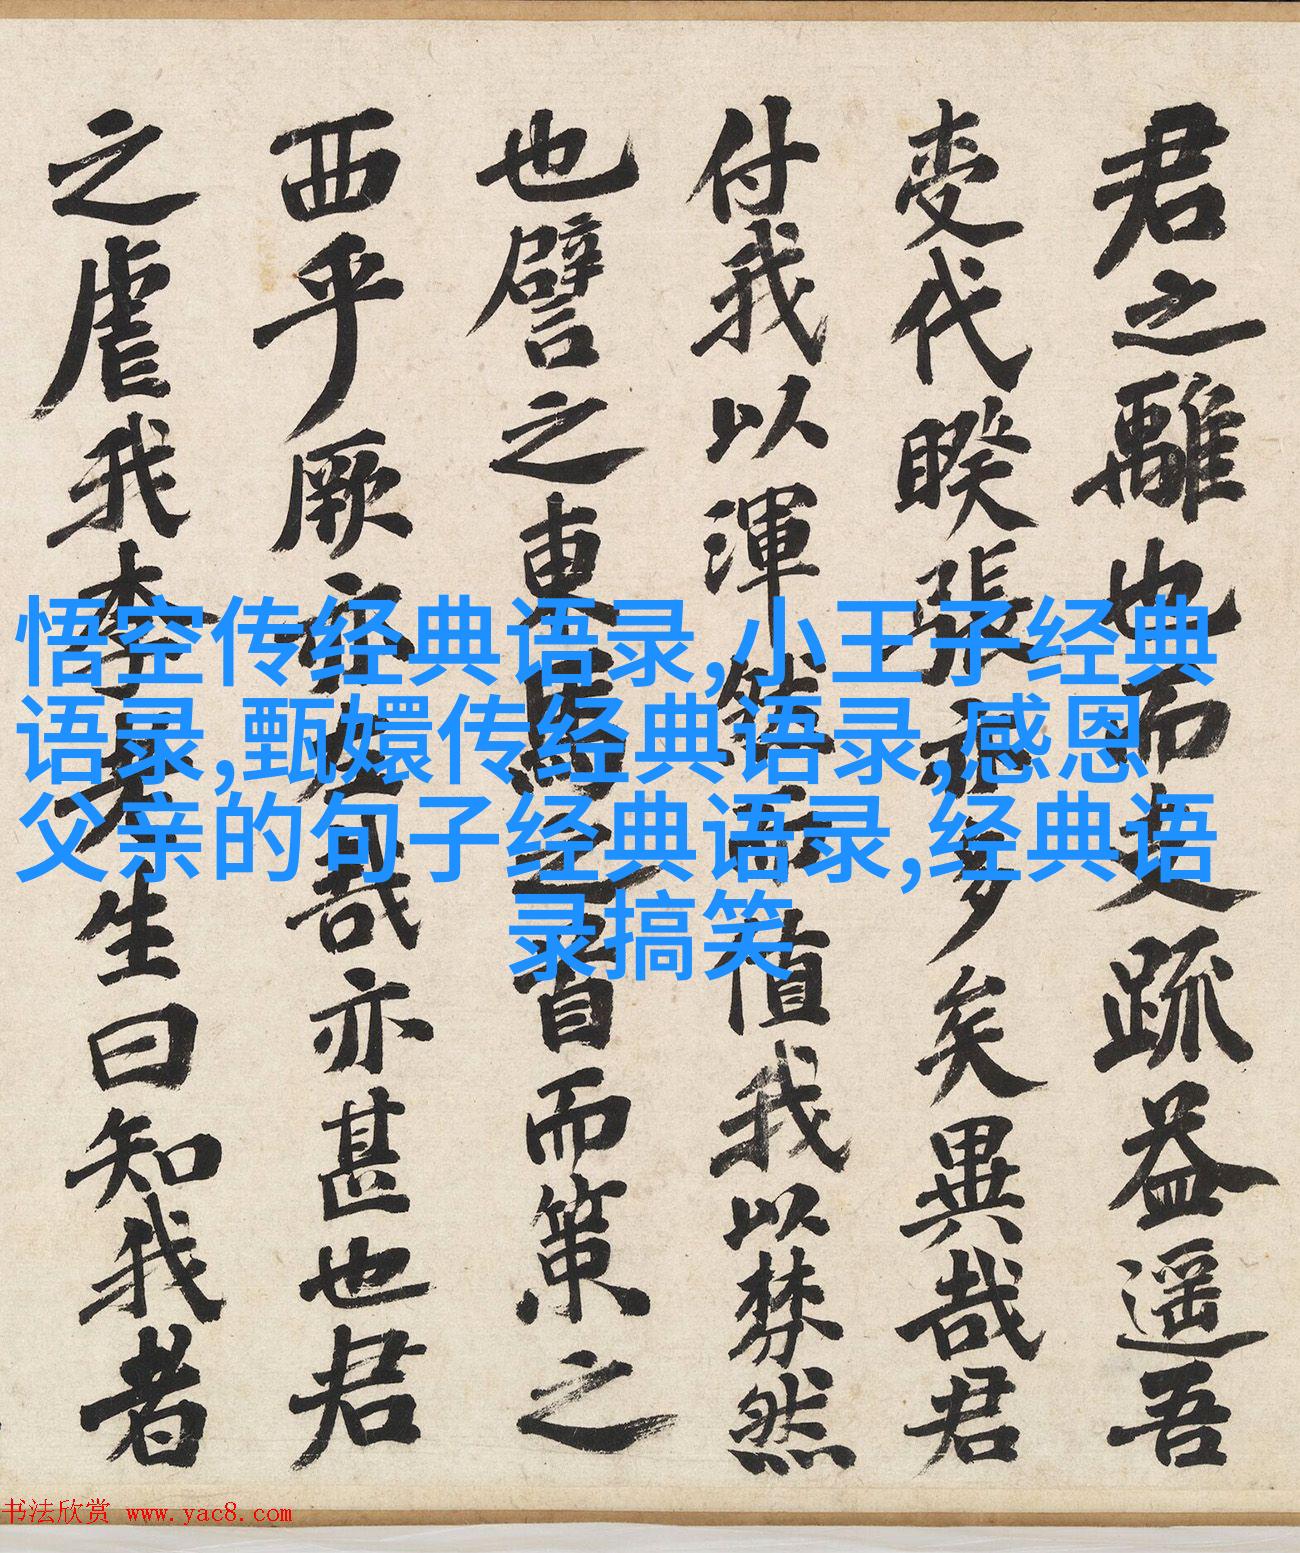 君之離也而吏疏益遥吾
受代暌張亦多矣異哉君
付我以渾錯而值我以棼然
也譬之東馬之首而策之
西乎厥亦戾哉亦甚也君
之虐我孝先生曰知我者
悟空传经典语录,小王子经典
语录,甄嬛传经典语录,感恩
父亲的句子经典语录,经典语
录搞笑
书法欣赏 www.yac8.com